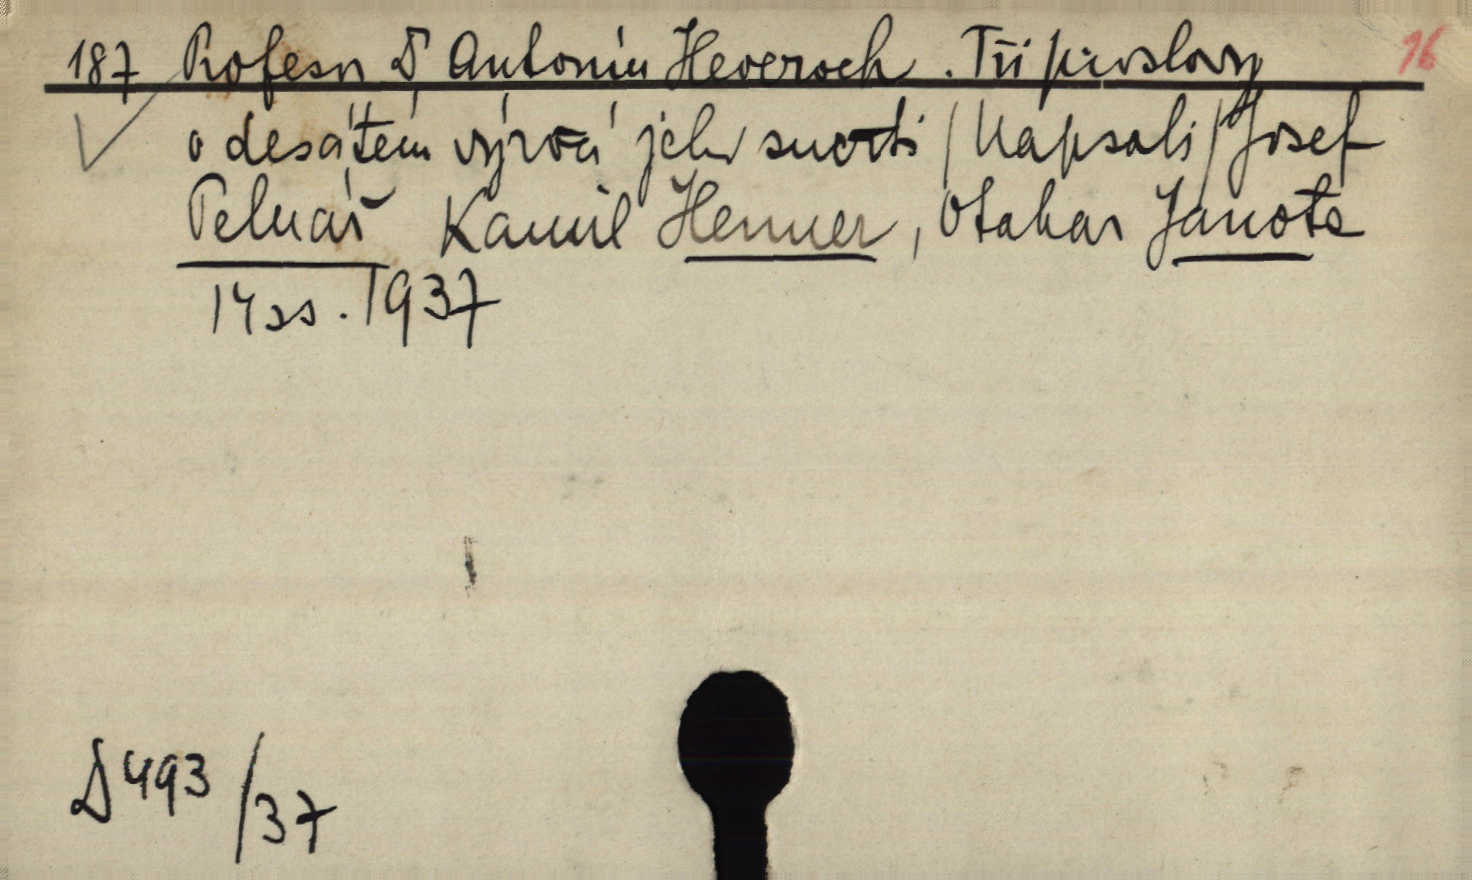 187 Profesor Dr Antonín Heveroch. Tři proslovy 16
o desátém výročí jeho smrti / Napsali / Josef
Pelnář Kamil Henner, Otakar Janota
14 ss. 1937
D 493/37